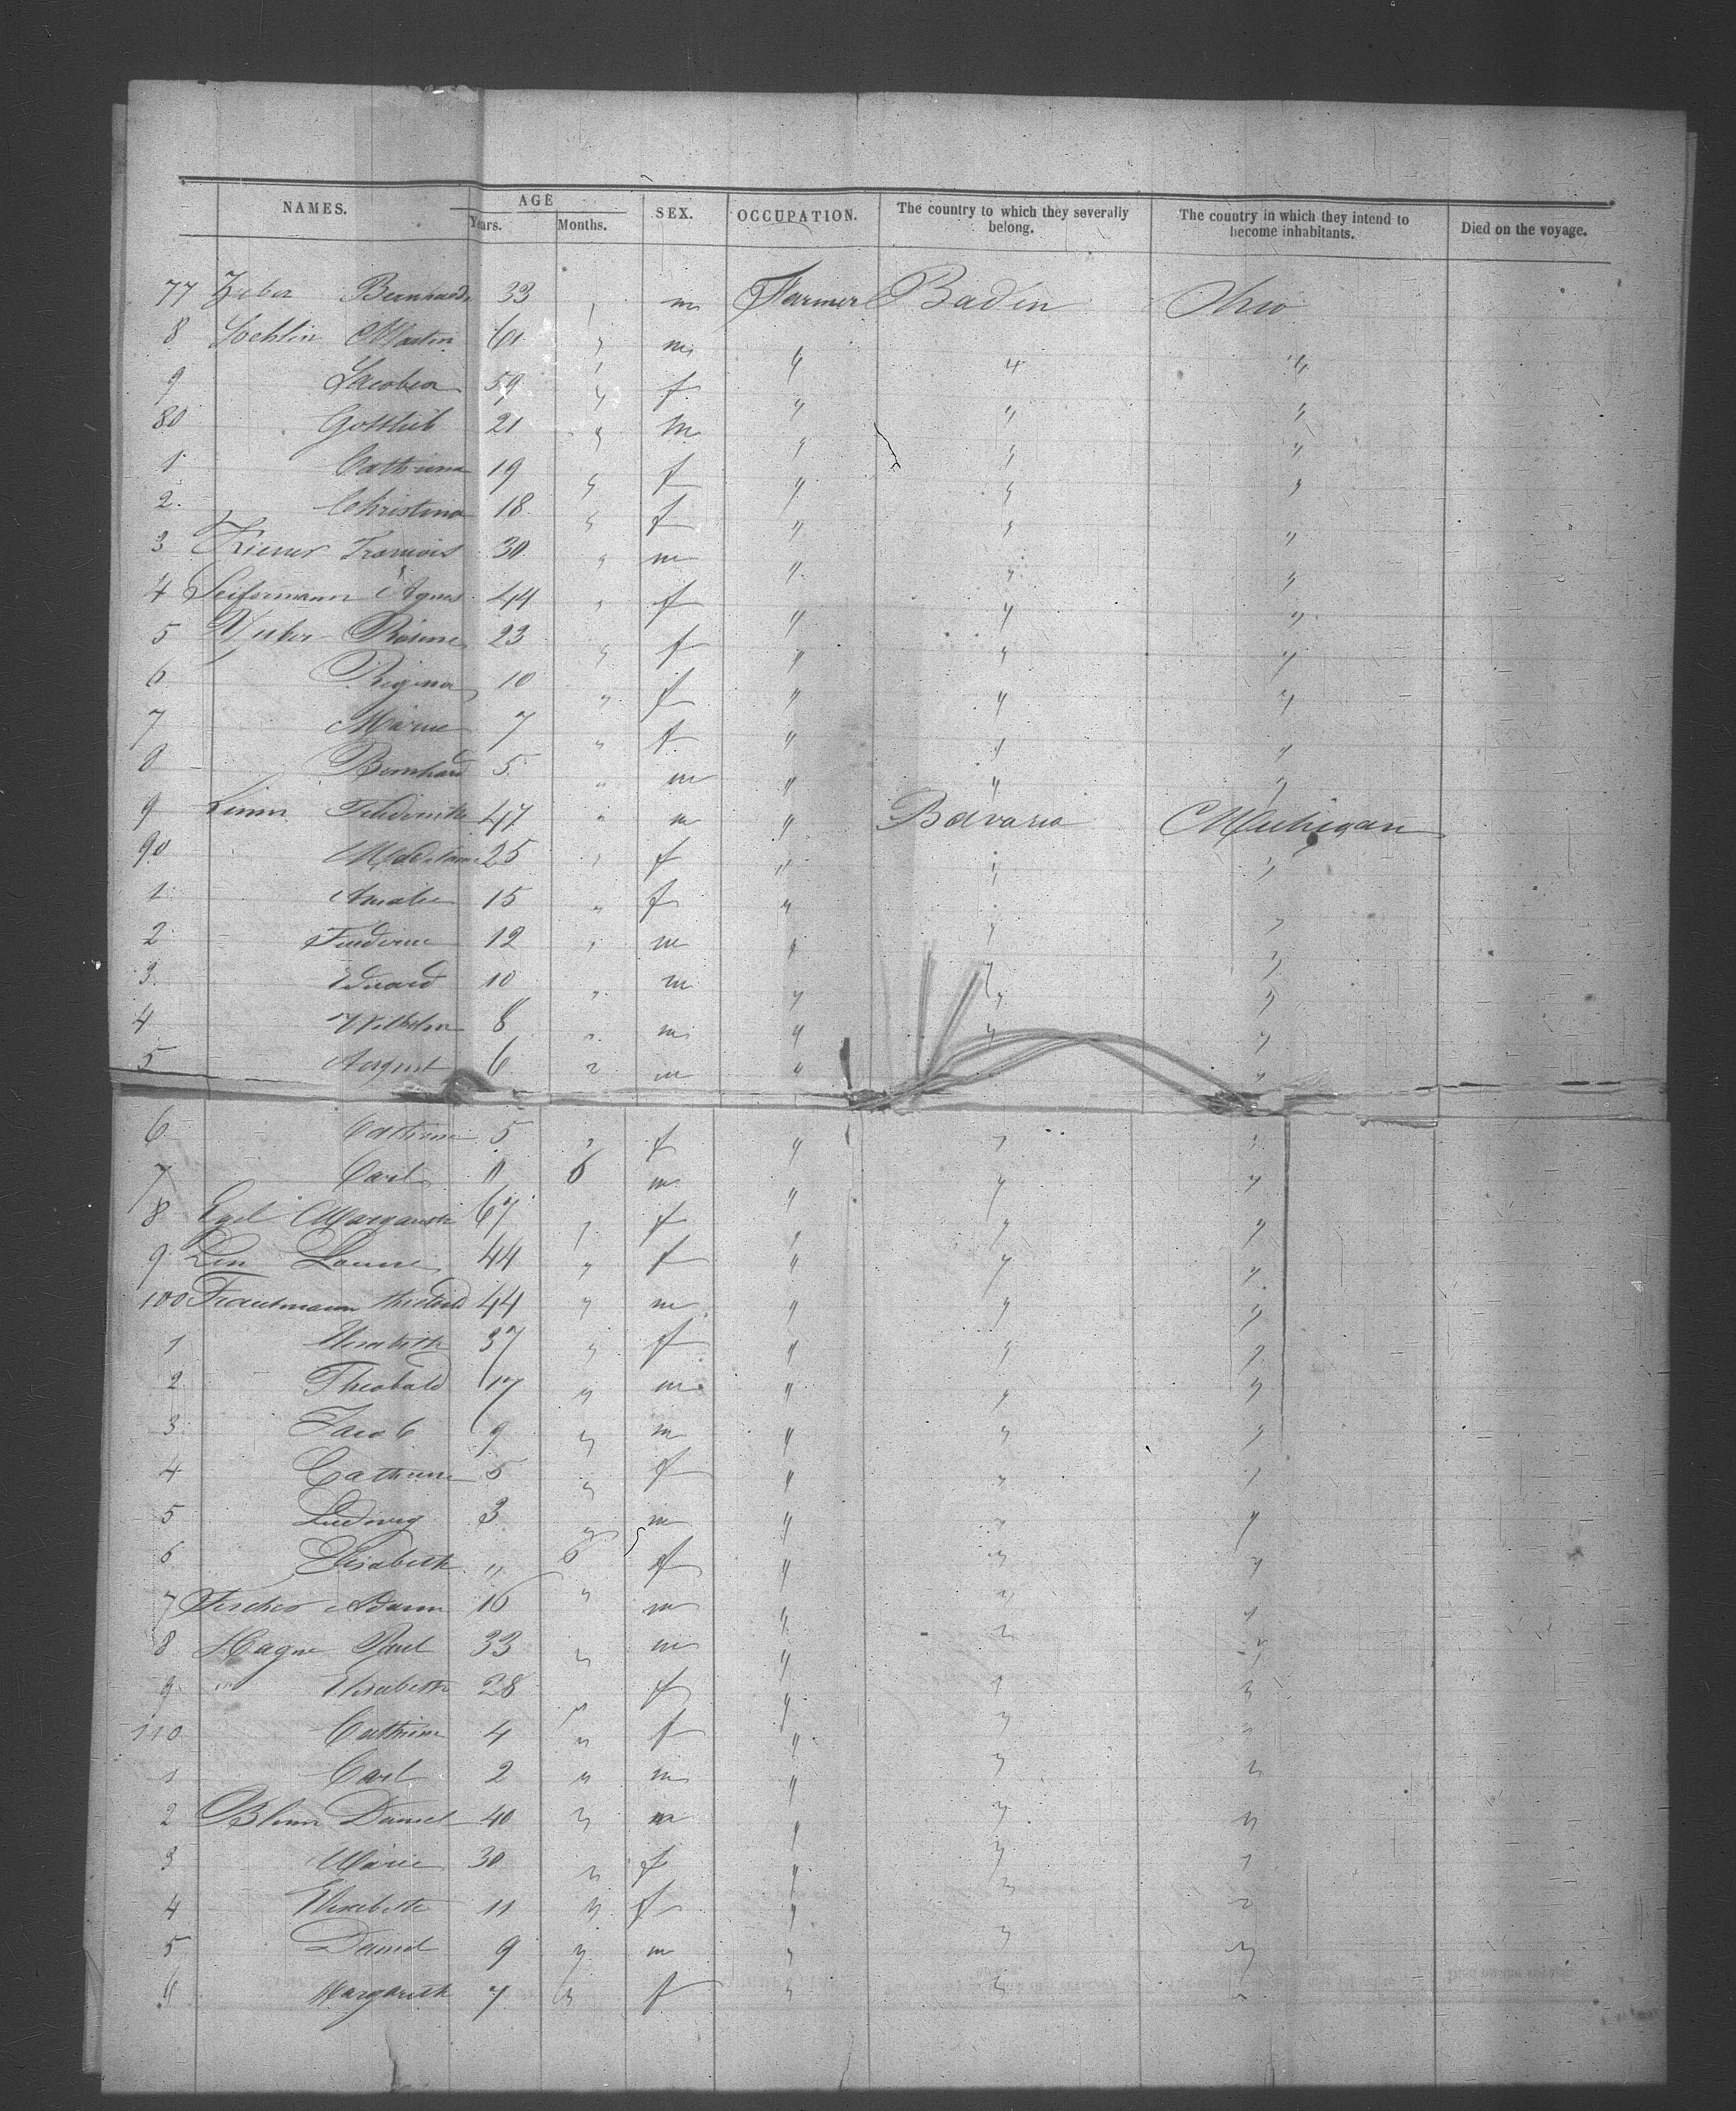 NAMES. AGE SEX. OCCUPATION. The country to which they severally belong. The country in which they intend to become inhabitants. Died on the voyage.
Years. Months.
77 Bernhard 33 " m Farmer Baden Ohio
8 Martin 61 " m " " "
9 Jacobea 59 " f " " "
80 Gottlieb 21 " m " " "
1 Cathrina 19 " f " " "
2 Christina 18 " f " " "
3 Francois 30 " m " " "
4 Seifermann Agnes 44 " f " " "
5 Rosine 23 " f " " "
6 Regina 10 " f " " "
7 Marie 7 " f " " "
8 Bernhard 5 " m " " "
9 47 " m " Bavaria Michigan
90 25 " f " " "
1 Amalie 15 " f " " "
2 12 " m " " "
3 Eduard 10 " m " " "
4 Wilhelm 8 " m " " "
5 August 6 " m " " "
6 Cathrine 5 " f " " "
7 Carl " 6 m " " "
8 Egel Margareth 67 " f " " "
9 Louise 44 " f " " "
100 Trautmann 44 " m " " "
1 Elisabeth 37 " f " " "
2 Theobald 17 " m " " "
3 Jacob 9 " m " " "
4 Cathrine 5 " f " " "
5 Ludwig 3 " m " " "
6 Elisabeth " 6 f " " "
7 Fischer Adam 16 " m " " "
8 Hague Paul 33 " m " " "
9 " Elisabeth 28 " f " " "
110 Cathrine 4 " f " " "
1 Carl 2 " m " " "
2 Blum Daniel 40 " m " " "
3 Marie 30 " f " " "
4 Elisabeth 11 " f " " "
5 Daniel 9 " m " " "
6 Margareth 7 " f " " "